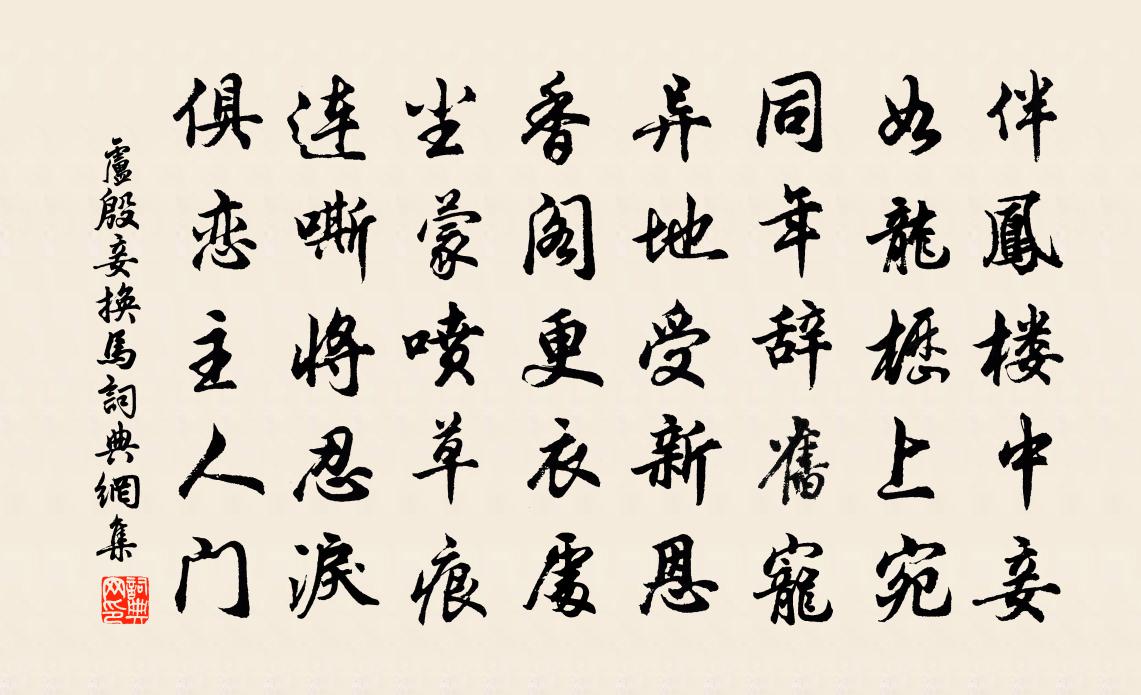 伴鳳楼中妾
如龍櫪上宛
同年辞舊寵
异地受新恩
香阁更衣處
尘蒙喷草痕
连嘶将忍淚
俱恋主人门
盧殷妾換馬詞典網集
詞典网印